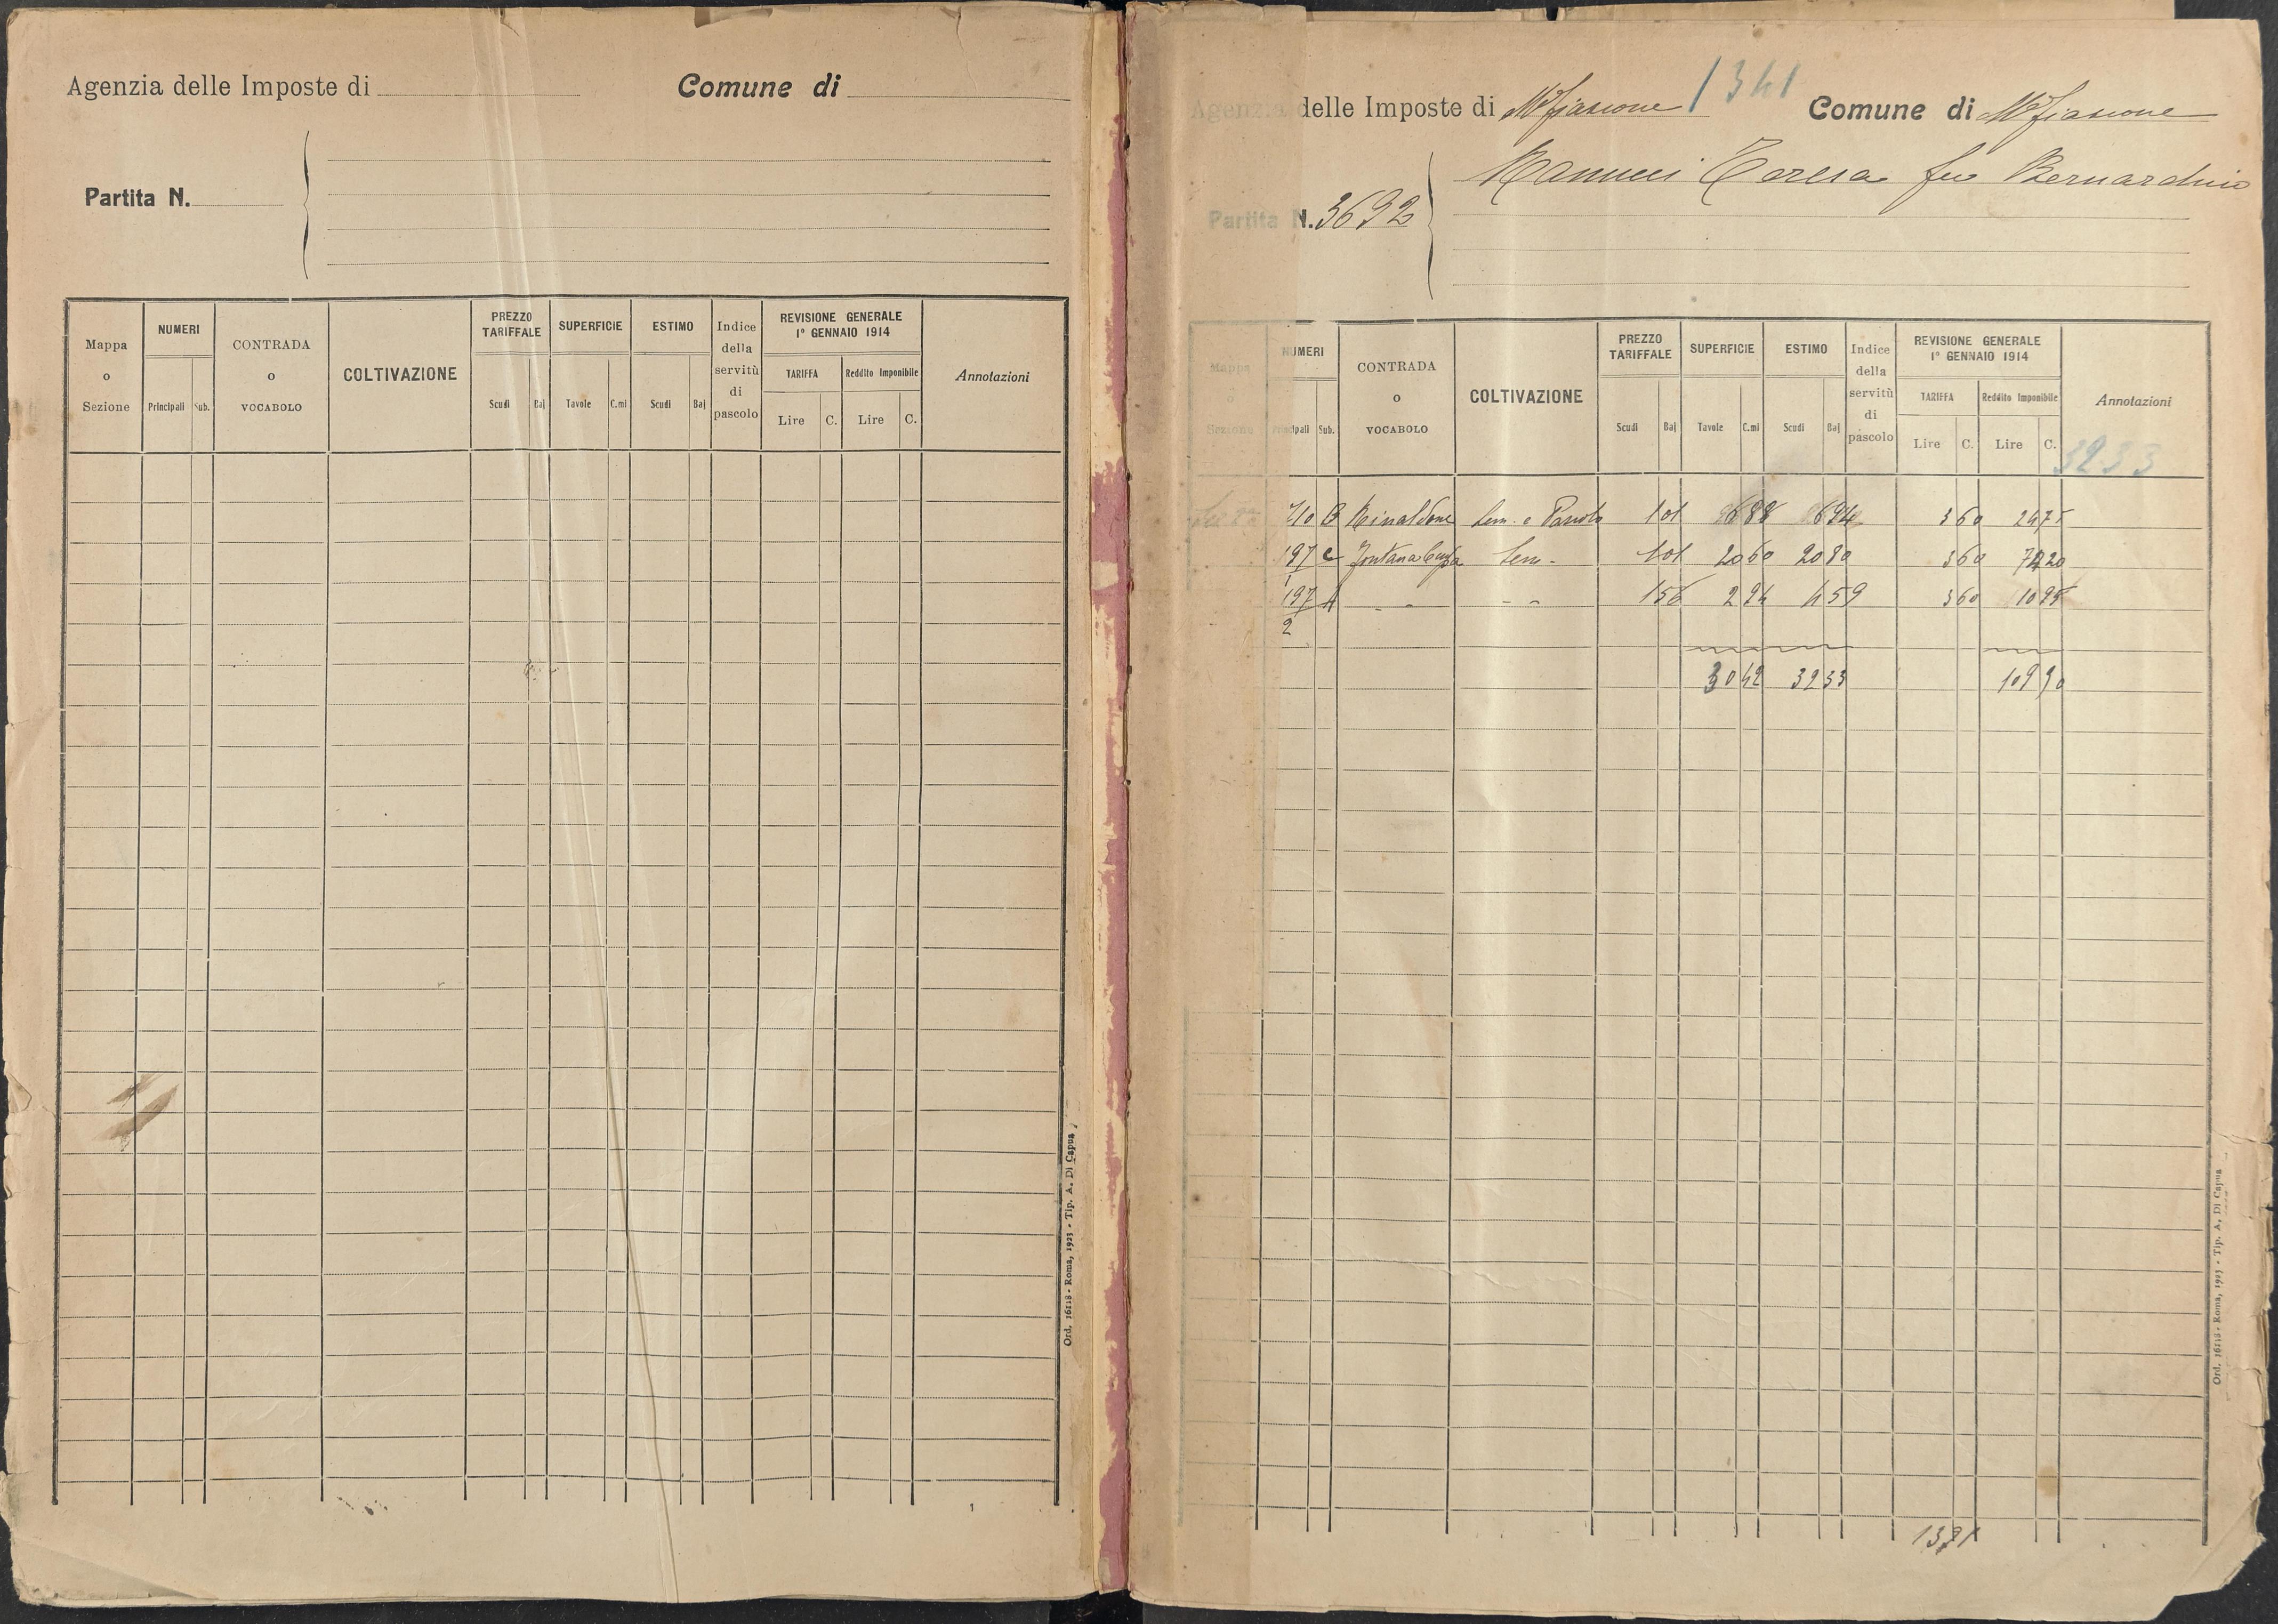 Agenzia delle Imposte di
Comune di
Partita N.
Mappa o Sezione
NUMERI
Principali
Sub.
CONTRADA o VOCABOLO
COLTIVAZIONE
PREZZO TARIFFALE
Scudi
Baj
SUPERFICIE
Tavole
C.mi
ESTIMO
Scudi
Baj
Indice della servitù di pascolo
REVISIONE GENERALE
1° GENNAIO 1914
TARIFFA
Lire
C.
Reddito Imponibile
Lire
C.
Annotazioni
Ord. 16118 - Roma, 1923 - Tip. A. Di Capua
1341
Agenzia delle Imposte di Mfiascone
Comune di Mfiascone
Teresa fu Bernardino
Partita N. 3692
Mappa o Sezione
NUMERI
Principali
Sub.
CONTRADA o VOCABOLO
COLTIVAZIONE
PREZZO TARIFFALE
Scudi
Baj
SUPERFICIE
Tavole
C.mi
ESTIMO
Scudi
Baj
Indice della servitù di pascolo
REVISIONE GENERALE
1° GENNAIO 1914
TARIFFA
Lire
C.
Reddito Imponibile
Lire
C.
Annotazioni
3233
710 Rinaldone Sem. e 1 01 6 88 6 94 3 60 24 75
197 1 c Sem. 1 01 20 60 20 80 3 60 74 20
197 2 A " " 1 56 2 94 4 59 3 60 10 95
30 42 32 33 109 90
Ord. 16118 - Roma, 1923 - Tip. A. Di Capua